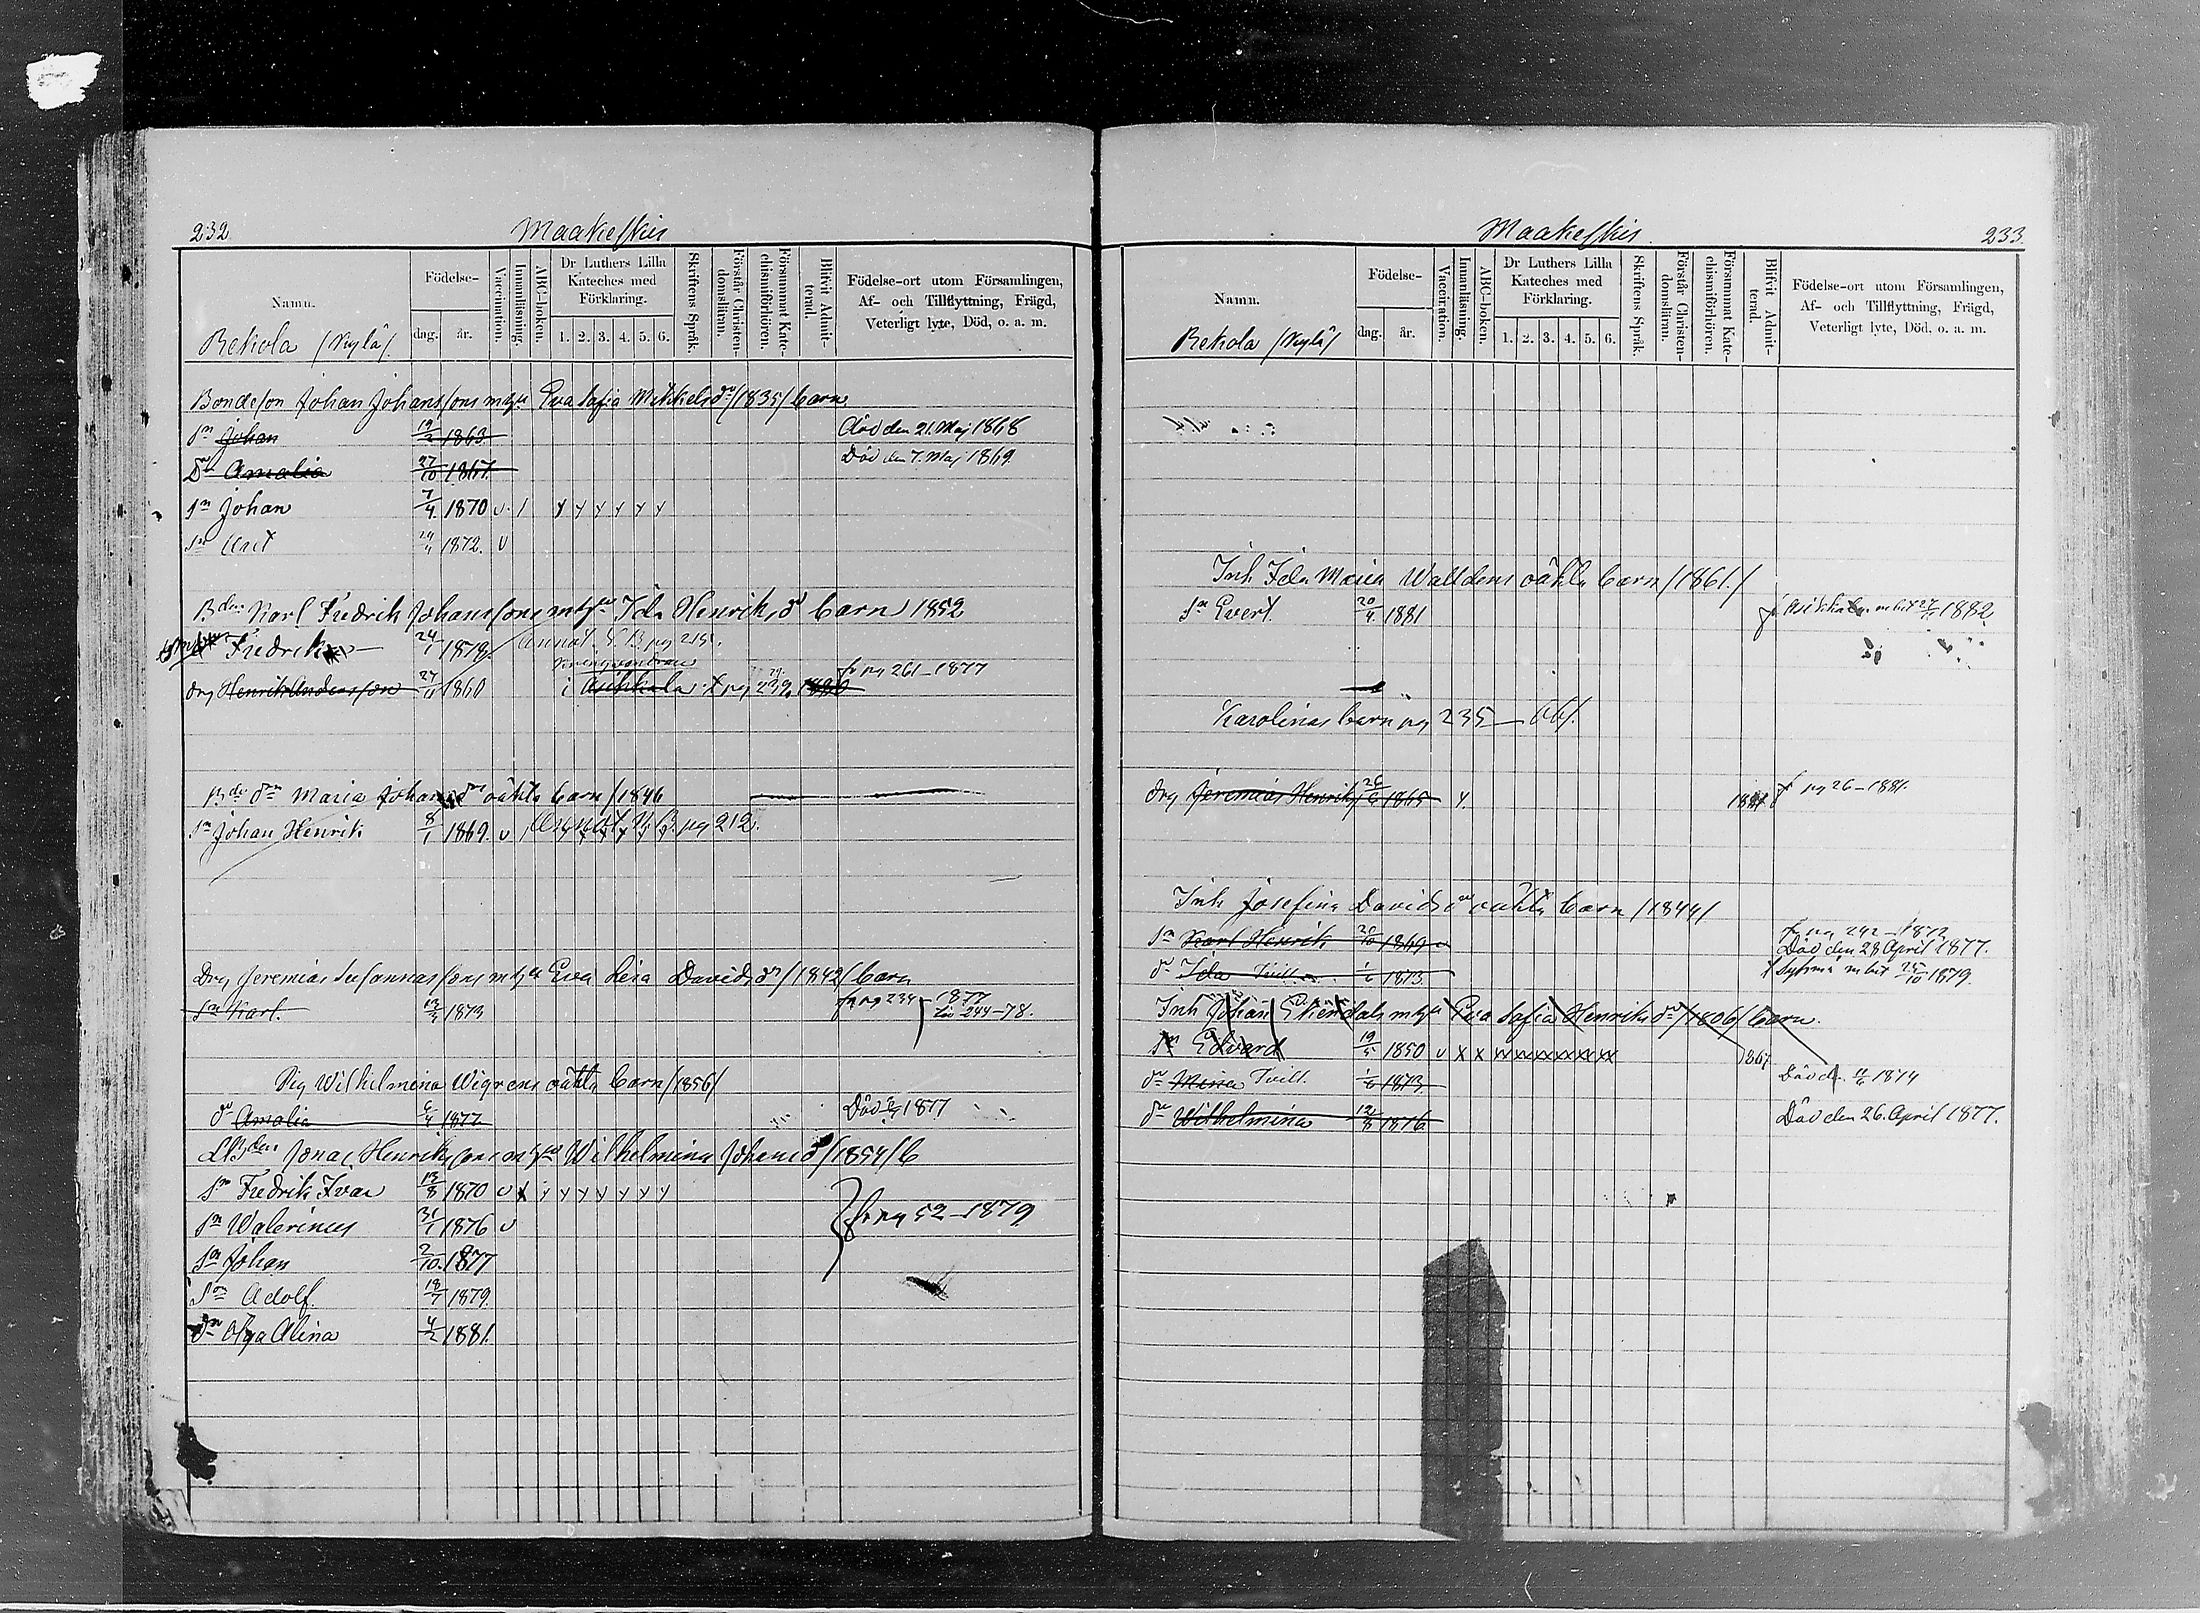 232.
Maakeskis
Namn.
Födelse-
dag.
år.
Vaccination.
Innanläsning.
ABC-boken.
Dr Luthers Lilla
Kateches med
Förklaring.
1. 2. 3. 4. 5. 6.
Skriftens Språk.
Förstår Christen-
domsläran.
Försummat Kate-
chismiförhören.
Blifvit Admit-
terad.
Födelse-ort utom Församlingen,
Af- och Tillflyttning, Frägd,
Veterligt lyte, Död, o. a. m.
Rekola /Kylä/.
Bondeson Johan Johanssons m hu Eva Sofia Mikkelsdr /1835/ barn
sn Johan 19/2 1863 Död den 21. Maj 1868
Dr Amalia 27/10 1867. Död den 7. Maj 1869.
sn Johan 7/4 1870 v / y y y y y y
sn 1872. v
Bdes Karl Fredrik Johanssons m hu Ida Henriksdr barn 1852
Fredrik 24/1 1878 Annat. N B pg 215.
drg Henrik Andersson 27/11 1860 i Asikkala fr pg 261 - 1877
Bde dn Maria Johansdrs oäkta barn /1846
sn Johan Henrik 8/1 1869. v Annat N B. pg 212.
Drg Jeremias Susannassons m hu Eva Lisa Davidsdr /1842/ barn
sn Karl. 1873 fr pg 234 - 1877
244-78.
Pig Wilhelmina Wigrens oäkta barn /1856/
dr Amalia 1877 Död 1877
Jonas Henrikssons m hu Wilhelmina Johansd /1854/ b
sn Fredrik Ivar 13/8 1870 v x y y y y y y y
sn Walerinus 31/1 1876 v fr pg 52 - 1879
sn Johan 2/10 1877
Son Adolf. 18/7 1879.
dn Olga Alina 4/2 1881.
Maakeskis.
233.
Namn.
Födelse-
dag.
år.
Vaccination.
Innanläsning.
ABC-boken.
Dr Luthers Lilla
Kateches med
Förklaring.
1. 2. 3. 4. 5. 6.
Skriftens Språk.
Förstår Christen-
domsläran.
Försummat Kate-
chismiförhören.
Blifvit Admit-
terad.
Födelse-ort utom Församlingen,
Af- och Tillflyttning, Frägd,
Veterligt lyte, Död. o. a. m.
Rekola /Kylä/
Inh Ida Maria Walldens oäkta barn /1861./
sn Evert 20/4. 1881 Asikkala m bet 1882
Karolinas barn pg 235
drg Jeremias Henriks 1865 y 1881 f pg 26 - 1881.
Inh Josefina Davidsdrs oäkta barn /1844/
sn Karl Henrik 20/10 1869 fr pg 242 - 1872
Död den 28 April 1877.
dr Ida Tvill. 1/6 1873. Sysmä m bet 25/10 1879.
Inh Johan m hu Eva Sofia Henriksdr /1806/ barn.
sn Edvard 19/5 1850 v x x 1867
dr Mina Tvill. 1/6 1873. Död d. 1874
dr Wilhelmina 12/8 1876 Död den 26. April 1877.